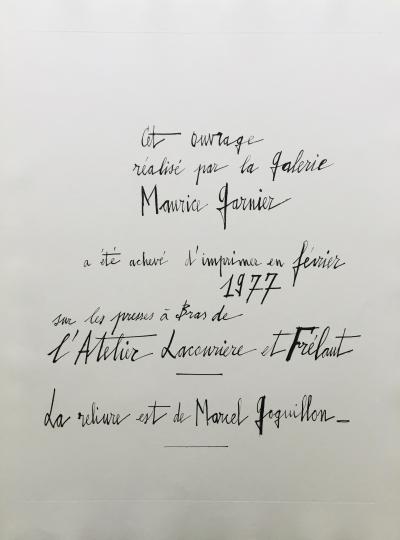 Cet ouvrage
réalisé par la galerie
Maurice Garnier
a été achevé d'imprimer en février
1977
sur les presses à Bras de
l'Atelier Lacourière et Frélaut
La reliure est de Marcel Goguillon_